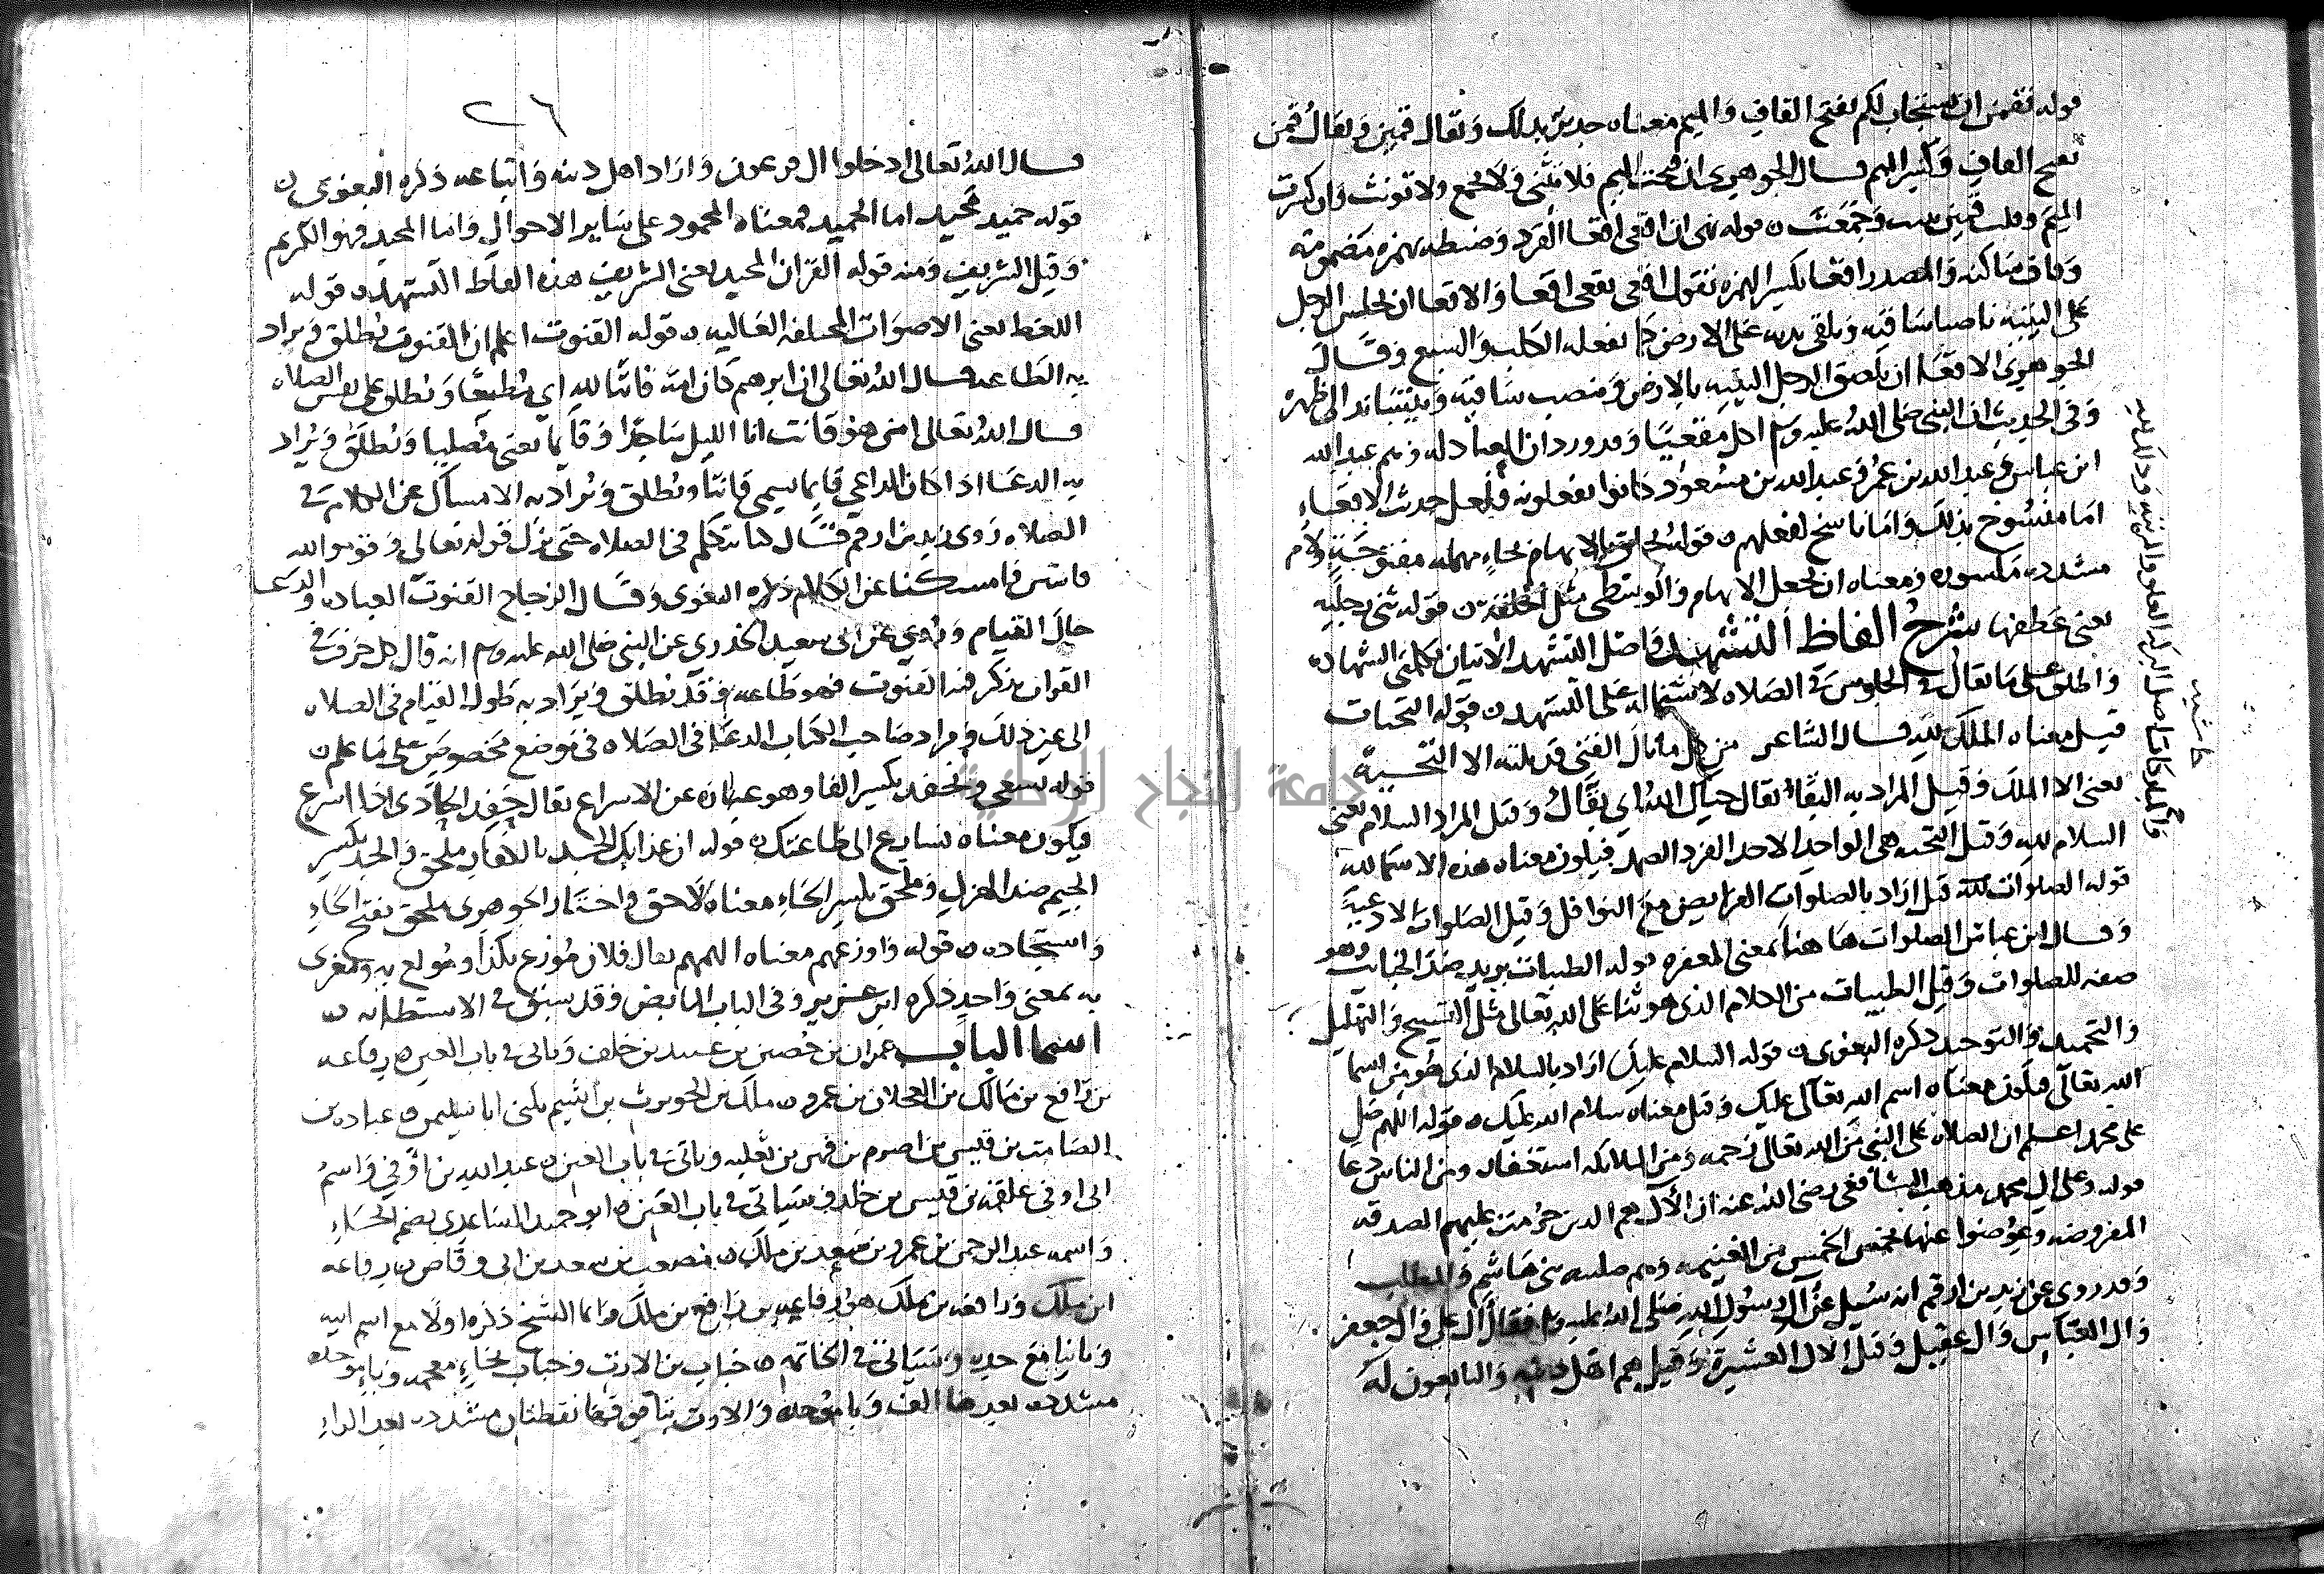 قوله فقمن ان يستجاب لكم بفتح القاف والميم معناه جدير بذلك ويقال قمين ويقال قمن
بفتح القاف وكسر الميم قال الجوهري ان فتحت الميم فلا تثنى ولا تجمع ولا تونث وان كسرت
الميم وقلت قمين ثنيت وجمعت ن قوله نهى ان اقعي اقعا القرد وضبطه بهمزه مضمومه
وقاف ساكنه والمصدر اقعا بكسر الهمزه تقول اقعى يقعي اقعا والاقعا ان يجلس الرجل
على اليتيه ناصبا ساقيه ويلقي يديه على الارض كما يفعله الكلب والسبع وقال
الجوهري الاقعا ان يلصق الرجل اليتيه بالارض وينصب ساقيه ويتساند الى ظهره
وفي الحديث ان النبي صلى الله عليه وسلم اكل مقعيا وقد ورد ان العبادله وهم عبد الله
ابن عباس وعبد الله بن عمر وعبد الله بن مسعود كانوا يفعلونه ولعل حديث الاقعاء
اما منسوخ بذلك واما ناسخ لفعلهم ن قوله يحلق بالابهام بحاء مهمله مفتوحة ولام
مشدده مكسوره ومعناه ان يجعل الابهام والوسطى مثل الحلقة ن قوله ثنى رجليه
يعني عطفها شرح الفاظ التشهد واصل التشهد الاتيان بكلمتي الشهاده
واطلق على ما يقال في الجلوس في الصلاه لاشتماله على التشهد ن قوله التحيات
قيل معناه الملك لله قال الشاعر من كل ما نال الفتى قد نلته الا التحية
يعني الا الملك وقيل المراد به البقا يقال حياك الله اي ابقاك وقيل المراد السلام يعني
السلام لله وقيل التحيه هي الواحد الاحد الفرد الصمد فيكون معناه هذه الاسما لله
قوله الصلوات لله قيل اراد بالصلوات الفرايض مع النوافل وقيل الصلوات الادعية
وقال ابن عباس الصلوات ها هنا بمعنى المغفره قوله الطيبات يريد ضد الخبايث وهو
صفه للصلوات وقيل الطيبات من الكلام الذي هو ثنا على الله تعالى مثل التسبيح والتهليل
والتحميد والتوحيد ذكره البغوي ن قوله السلام عليك اراد بالسلام الذي هو من اسما
الله تعالى فيكون معناه اسم الله تعالى عليك وقيل معناه سلام الله عليك ن قوله اللهم صل
على محمد اعلم ان الصلاه على النبي من الله تعالى رحمه ومن الملائكه استغفار ومن الناس دعا
قوله وعلى ال محمد مذهب الشافعي رضي الله عنه ان الآل هم الذين حرمت عليهم الصدقه
المفروضه وعوضوا عنها خمس الخمس من الغنيمه وهم صلبيه بني هاشم والمطلب
وقد روي عن زيد بن ارقم انه سيل عن آل رسول الله صلى الله عليه وسلم فقال آل علي وال جعفر
وال العباس وال عقيل وقيل الال العشيرة وقيل هم اهل دينه والتابعون له
حاشيه
٢٦
قال الله تعالى ادخلوا ال فرعون واراد اهل دينه واتباعه ذكره البغوي ن
قوله حميد مجيد اما الحميد فمعناه المحمود على ساير الاحوال واما المجيد فهو الكريم
وقيل الشريف ومنه قوله القران المجيد يعني الشريف هذه الفاظ التشهد ن قوله
اللغط يعني الاصوات المختلفه العاليه ن قوله القنوت اعلم ان القنوت يطلق ويراد
به الطاعه قال الله تعالى ان ابرهيم كان امة قانتا لله اي مطيعا ويطلق على نفس الصلاه
قال الله تعالى امن هو قانت انا الليل ساجدا وقايما يعني مصليا ويطلق ويراد
به الدعا اذا كان الداعي قايما يسمى قانتا ويطلق ويراد به الامساك عن الكلام في
الصلاه روى زيد بن ارقم قال كنا نتكلم في الصلاه حتى نزل قوله تعالى وقوموا لله
قانتين فامسكنا عن الكلام ذكره البغوي وقال الزجاج القنوت العباده والدعا
حال القيام وروي عن ابي سعيد الخدري عن النبي صلى الله عليه وسلم انه قال كل حرف في
القران يذكر فيه القنوت فهو طاعه وقد يطلق ويراد به طول القيام في الصلاه
الى غير ذلك ومراد صاحب الكتاب الدعا في الصلاه في موضع مخصوص على ما علم ن
قوله نسعى ونحفد بكسر الفا وهو عباره عن الاسراع يقال حفد الحادي اذا اسرع
فيكون معناه نسارع الى طاعتك ن قوله ان عذابك الجد بالكفار ملحق والجد بكسر
الجيم ضد الهزل وملحق بكسر الحاء معناه لاحق واختار الجوهري ملحق بفتح الحاء
واستجاده ن قوله واوزعهم معناه الهمهم يقال فلان موزع بكذا ومولع به ومغرى
به بمعنى واحد ذكره ابن عزيز وفي الباب المابض وقد سبق في الاستطابه ن
اسما الباب عمران بن حصين بن عبيد بن خلف وياتي في باب العين ن رفاعه
بن رافع بن مالك بن العجلان بن عمرو ن ملك بن الحويرث بن اشيم يكنى ابا سليمن ن عباده بن
الصامت بن قيس بن اصرم بن فهر بن ثعلبه وياتي في باب العين ن عبد الله بن اوفى واسم
ابي اوفى علقمه بن قيس بن خلد وسياتي في باب العين ن ابو حميد الساعدي بضم الحاء
واسمه عبد الرحمن بن عمرو بن سعد بن ملك ن مصعب بن سعد بن ابي وقاص ن رفاعه
ابن ملك ورافعه بن ملك هو رفاعه بن رافع بن ملك وانما الشيخ ذكره اولا مع اسم ابيه
وثانيا مع جده وسياتي في الخاتمه ن خباب بن الارت وخباب بخاء معجمه وباء موحده
مشدده بعدها الف وبا موحده والارت بتا فوقها نقطتان مشدده بعد الراء